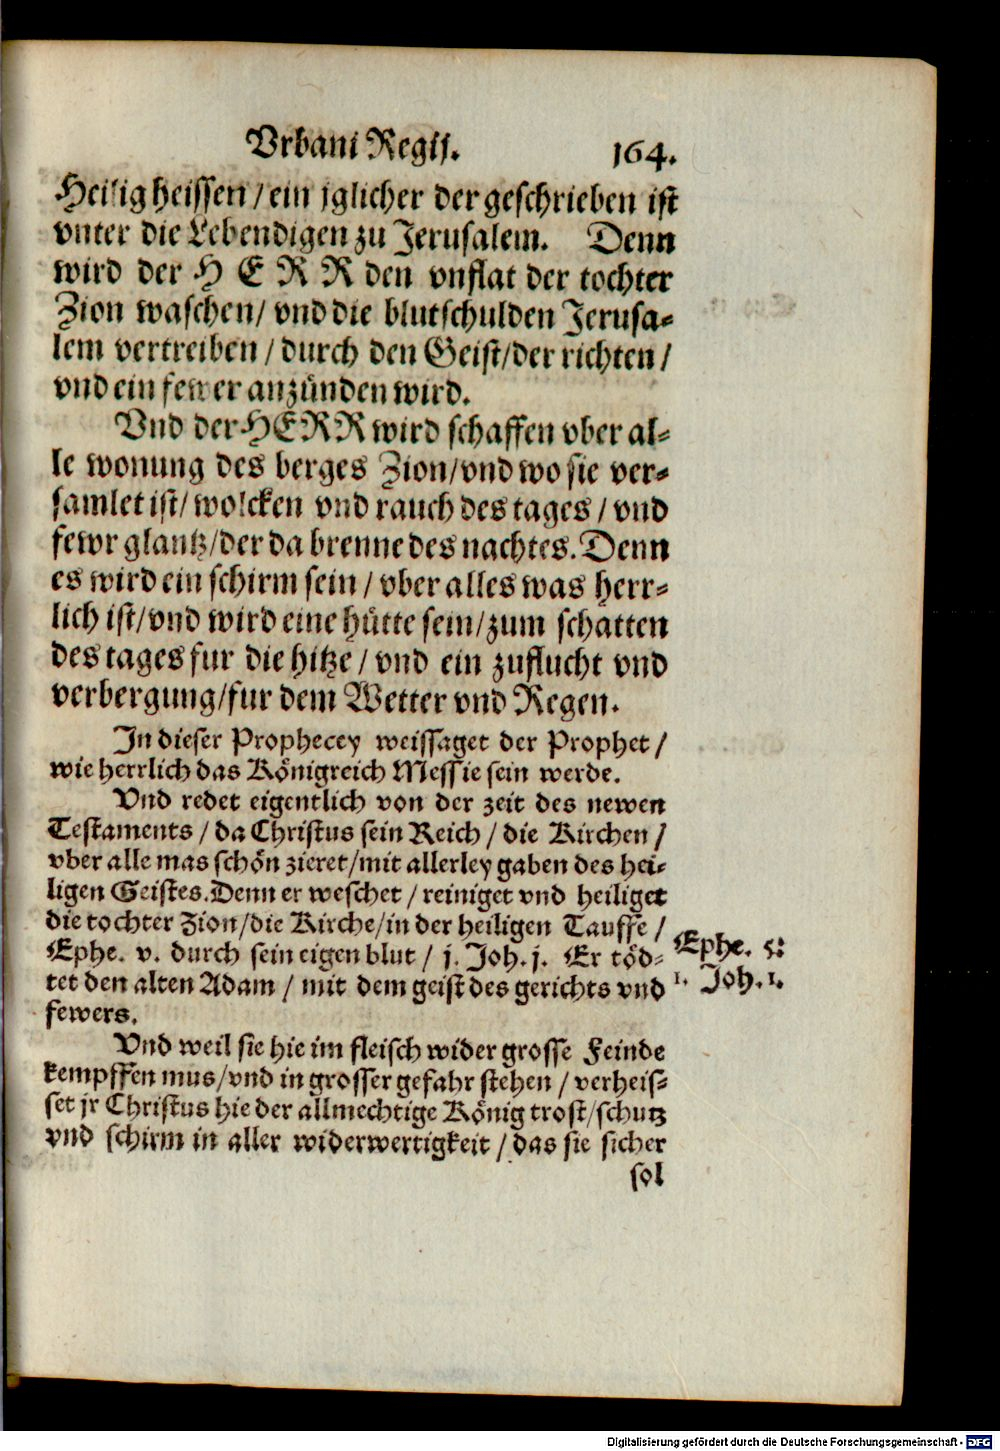 Vrbani Regij. 164.
Heilig heissen / ein jglicher der geschrieben ist
vnter die Lebendigen zu Jerusalem. Denn
wird der H E R R den vnflat der tochter
Zion waschen / vnd die blutschulden Jerusa⸗
lem vertreiben / durch den Geist / der richten /
vnd ein fewer anzünden wird.
Vnd der HERR wird schaffen vber al⸗
le wonung des berges Zion / vnd wo sie ver⸗
samlet ist / wolcken vnd rauch des tages / vnd
fewr glantz / der da brenne des nachtes. Denn
es wird ein schirm sein / vber alles was herr⸗
lich ist / vnd wird eine hütte sein / zum schatten
des tages fur die hitze / vnd ein zuflucht vnd
verbergung / fur dem Wetter vnd Regen.
In dieser Prophecey weissaget der Prophet /
wie herrlich das Königreich Messie sein werde.
Vnd redet eigentlich von der zeit des newen
Testaments / da Christus sein Reich / die Kirchen /
vber alle mas schön zieret / mit allerley gaben des hei⸗
ligen Geistes. Denn er weschet / reiniget vnd heiliget
die tochter Zion / die Kirche / in der heiligen Tauffe /
Ephe. v. durch sein eigen blut / j. Joh. j. Er töd⸗
tet den alten Adam / mit dem geist des gerichts vnd
fewers.
Ephe. 5.
1. Joh. 1.
Vnd weil sie hie im fleisch wider grosse Feinde
kempffen mus / vnd in grosser gefahr stehen / verheis⸗
set jr Christus hie der allmechtige König trost / schutz
vnd schirm in aller widerwertigkeit / das sie sicher
sol
Digitalisierung gefördert durch die Deutsche Forschungsgemeinschaft - DFG